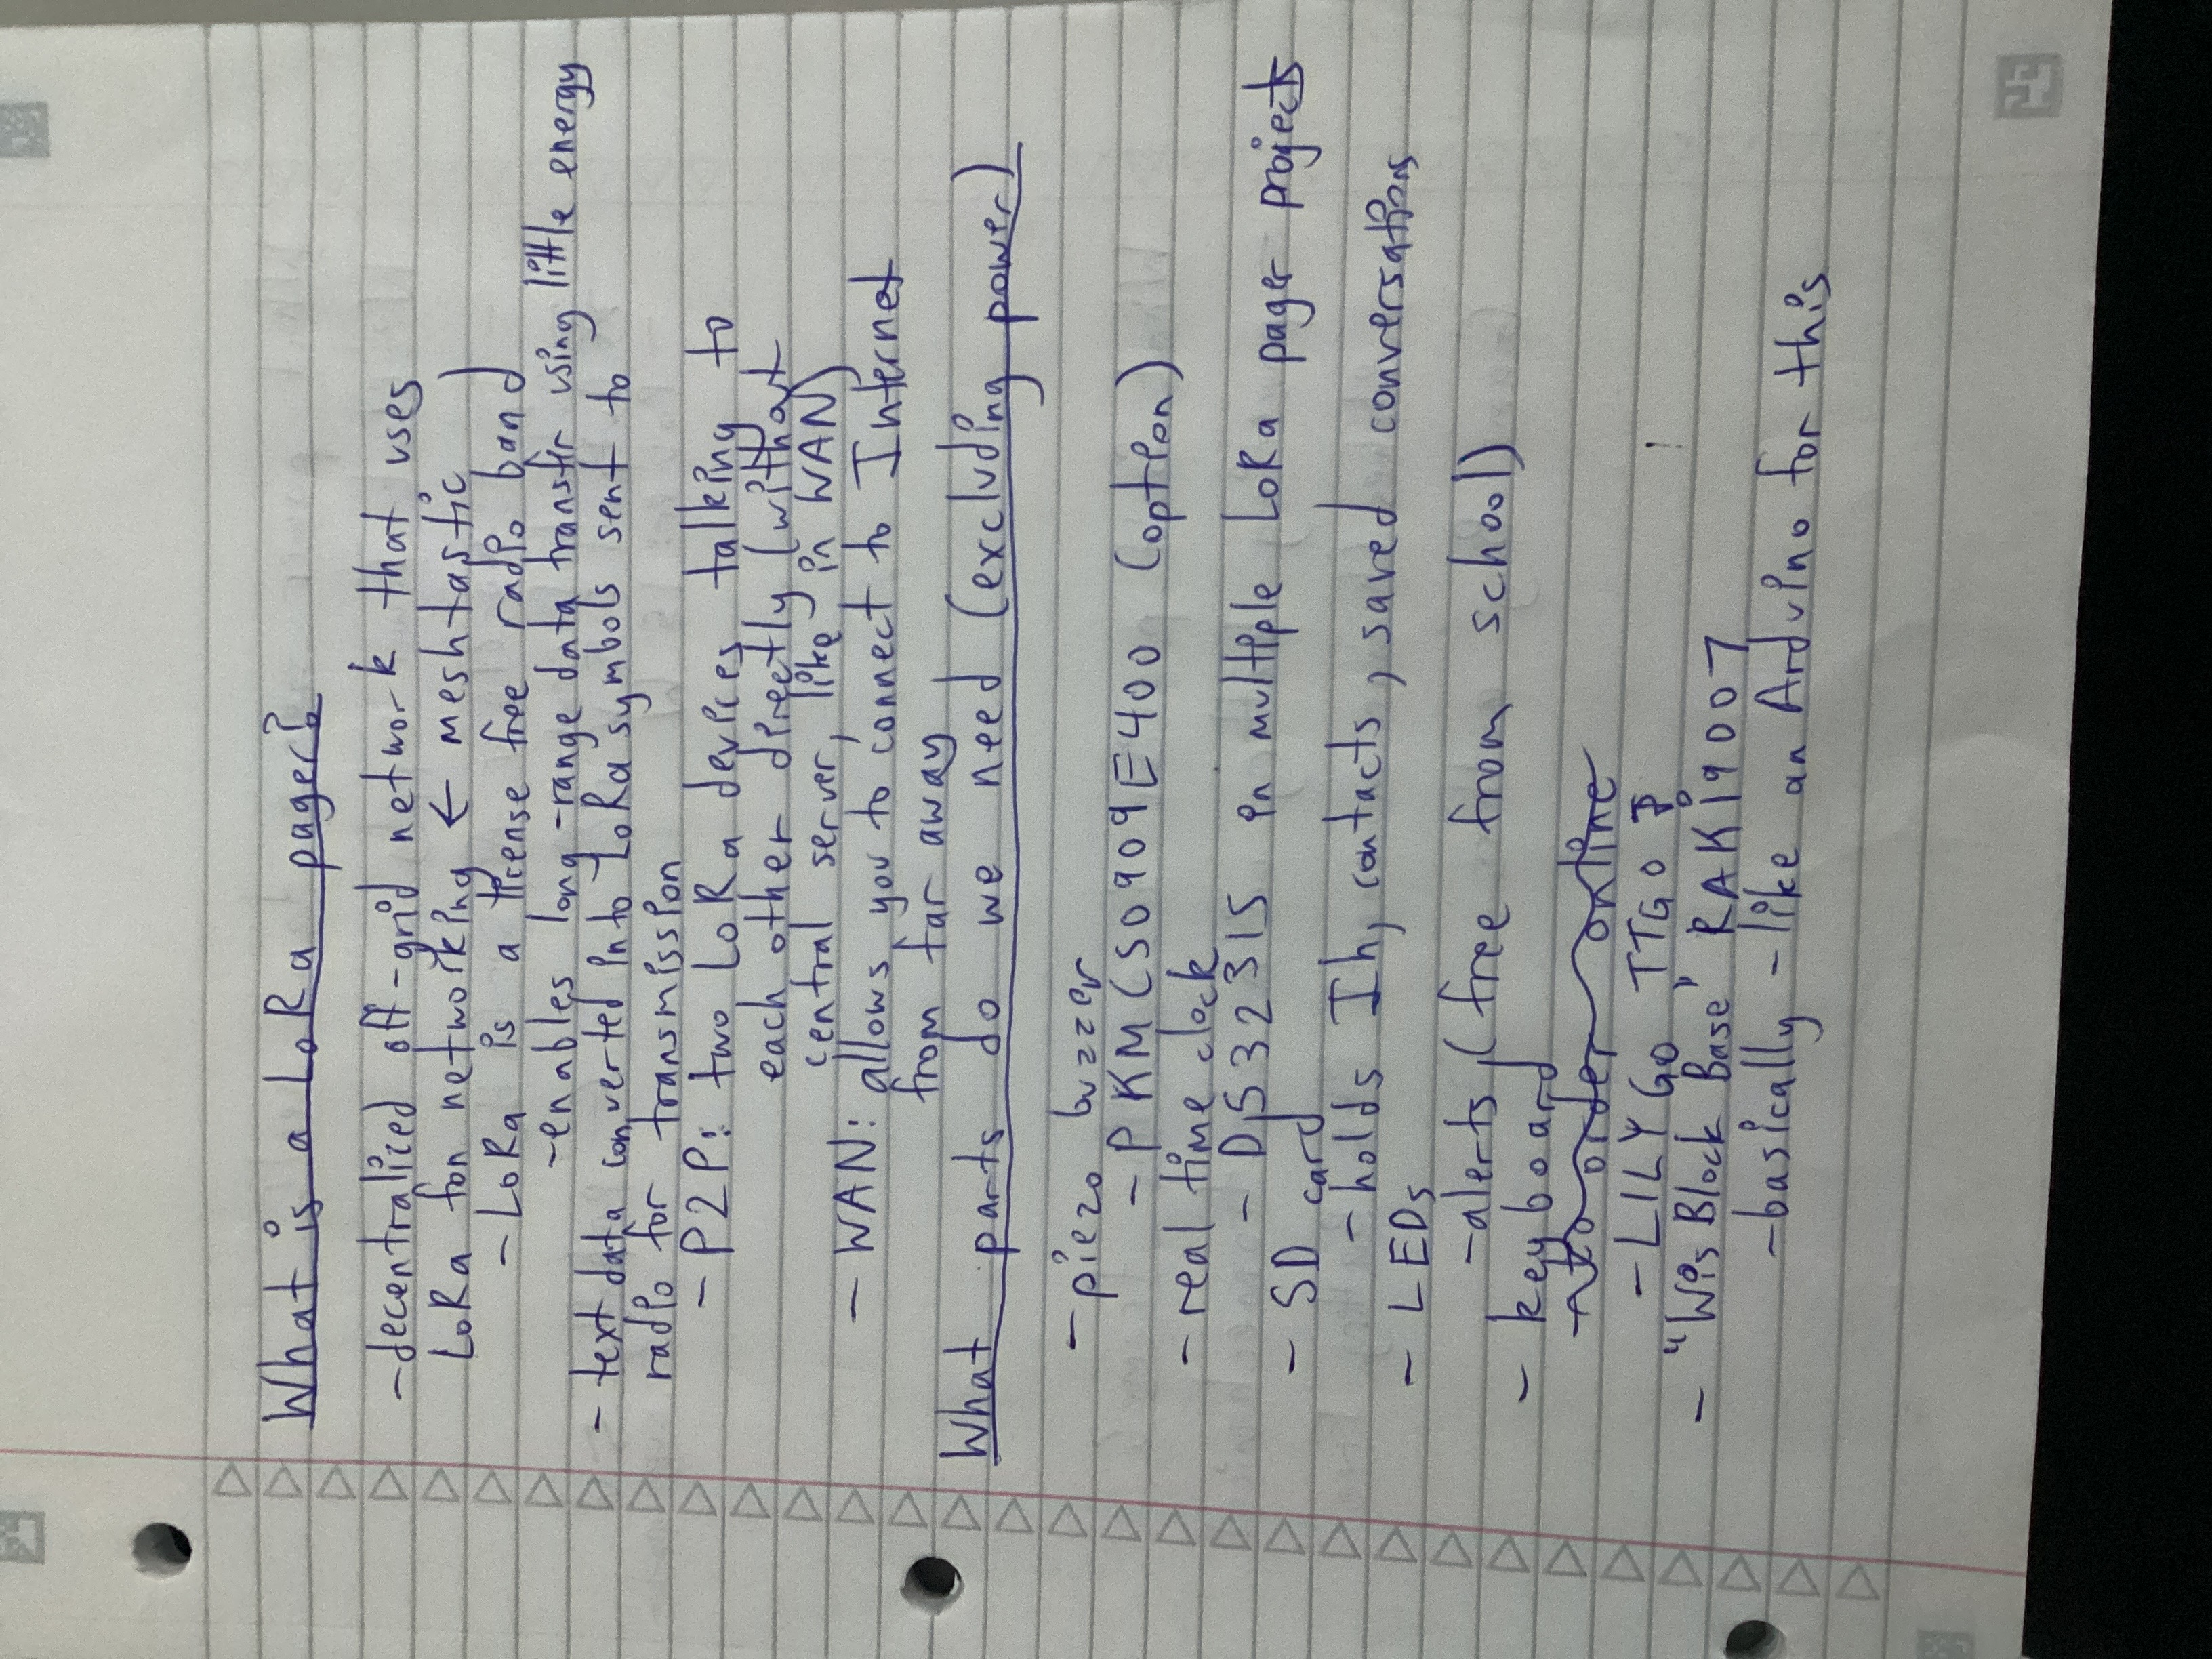 What is a LoRa pager?
-decentralized off-grid network that uses
LoRa for networking ← meshtastic
-LoRa is a license free radio band
-enables long-range data transfer using little energy
- text data converted into LoRa symbols sent to
radio for transmission
- P2P: two LoRa devices talking to
each other directly (without
central server, like in WAN)
- WAN: allows you to connect to Internet
from far away
What parts do we need (excluding power)
-piezo buzzer
- PKMCS0909E400 (option)
- real time clock
- DS3231S in multiple LoRa pager projects
- SD card
-holds Ih, contacts, saved conversations
- LEDs
-alerts (free from school)
- keyboard
-to order online
-LILYGO TTGO
- "WisBlock Base" RAK19007
-basically -like an Arduino for this